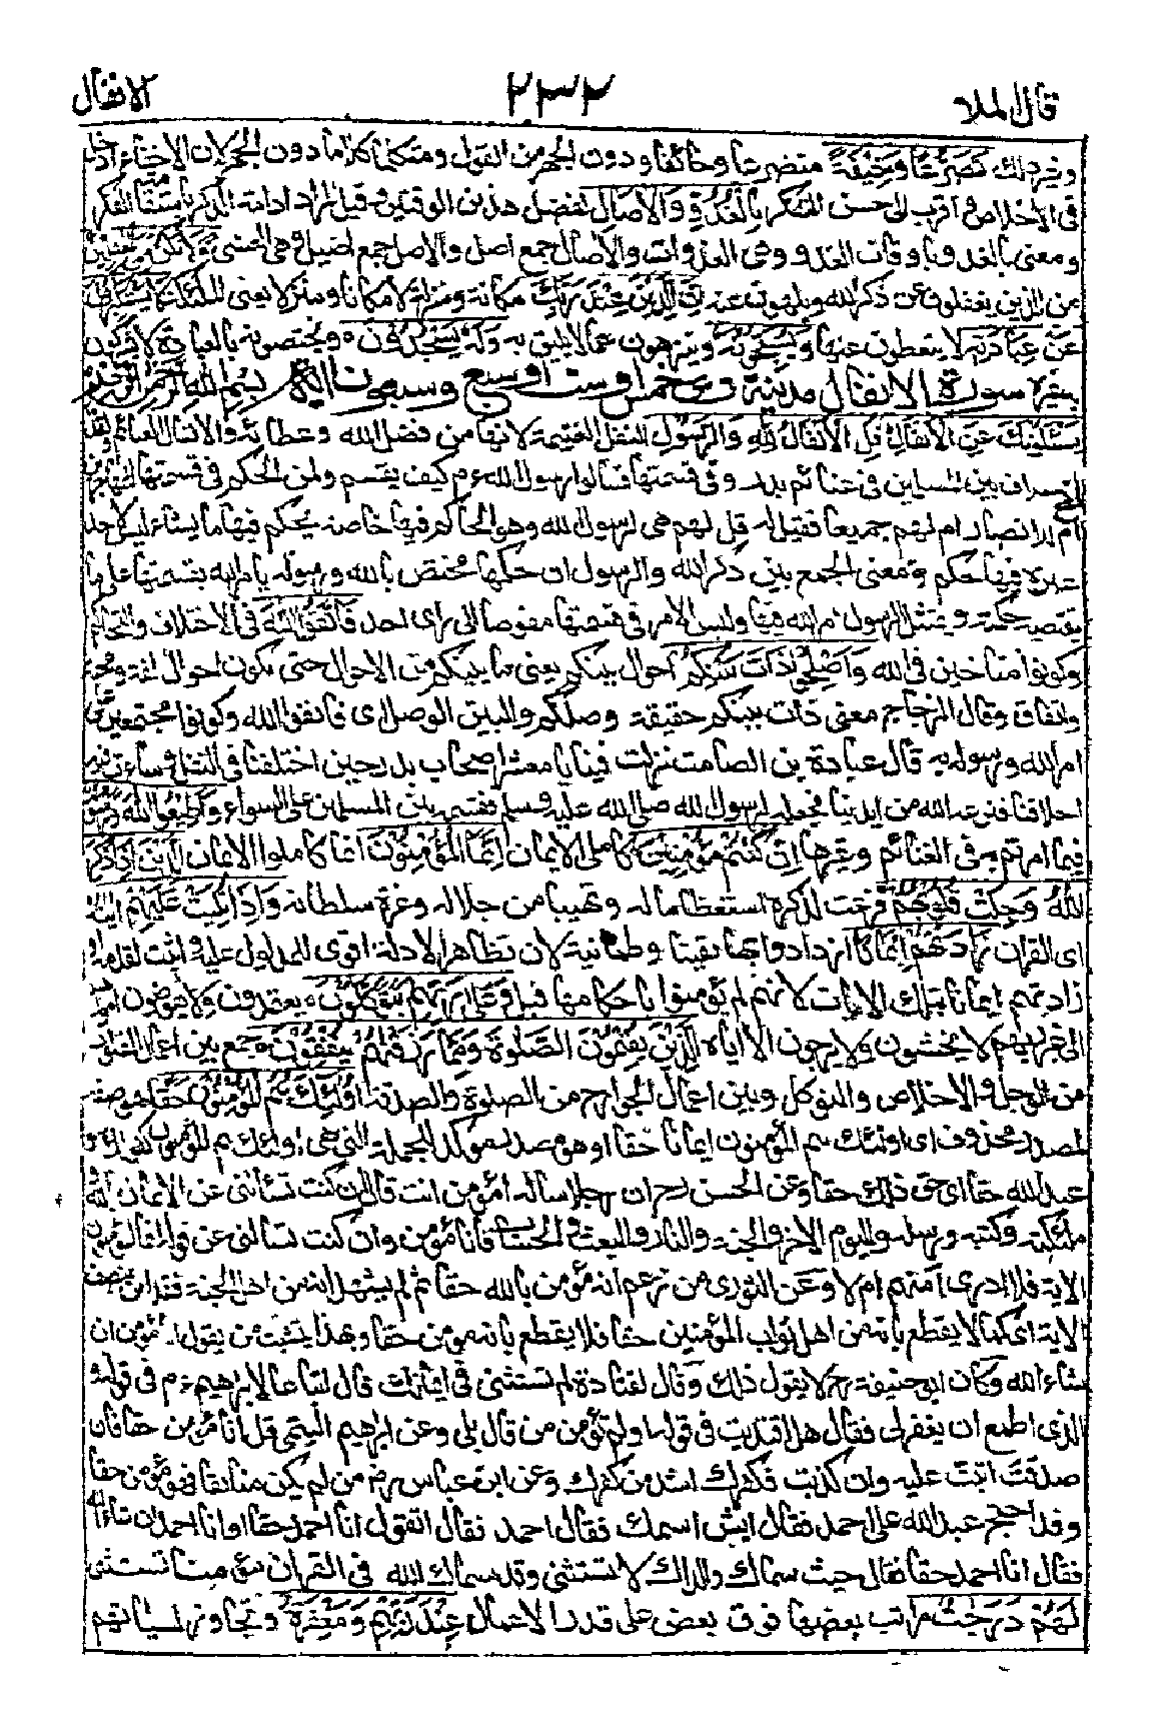 قال الملا ٢٣٢ الانفال
وغير ذلك تَضَرُّعًا وَخِيفَةً متضرعا وخائفا ودون الجهر من القول ومتكلما كلاما دون الجهر لان الاخفاء ادخل
فى الاخلاص واقرب الى حسن التفكر بِالْغُدُوِّ وَالْآصَالِ لفضل هذين الوقتين وقيل المراد ادامة الذكر باستقامة الفكر
ومعنى بالغدو باوقات الغدو وهى الغدوات والآصال جمع اصل والاصل جمع اصيل وهى العشى وَلَا تَكُنْ مِنَ الْغَافِلِينَ
من الذين يغفلون عن ذكر الله ويلهون عنه إِنَّ الَّذِينَ عِنْدَ رَبِّكَ مكانة ومنزلة لا مكانا ومنزلا يعنى الملائكة لَا يَسْتَكْبِرُونَ
عَنْ عِبَادَتِهِ لا يتعظمون عنها وَيُسَبِّحُونَهُ وينزهون عما لا يليق به وَلَهُ يَسْجُدُونَ ه ويختصونه بالعبادة لا يشركون
به غيره سورة الانفال مدنية وهى خمس او ست او سبع وسبعون اية بسم الله الرحمن الرحيم
يَسْئَلُونَكَ عَنِ الْأَنْفَالِ قُلِ الْأَنْفَالُ لِلَّهِ وَالرَّسُولِ النفل الغنيمة لانها من فضل الله وعطائه والانفال الغنائم ولقد
وقع اختلاف بين المسلمين فى غنائم بدر وفى قسمتها فسالوا رسول الله ءم كيف يقسم ولمن الحكم فى قسمتها للمهاجرين
ام للانصار ام لهم جميعا فقيل له قل لهم هى لرسول الله وهو الحاكم فيها خاصة يحكم فيها ما يشاء ليس لاحد
غيره فيها حكم ومعنى الجمع بين ذكر الله والرسول ان حكمها مختص بالله ورسوله يامر الله بقسمتها على ما
تقتضيه حكمته ويمتثل الرسول امر الله فيها وليس الامر فى قسمتها مفوضا الى راى احد فَاتَّقُوا اللَّهَ فى الاختلاف والتخاصم
وكونوا متآخين فى الله وَأَصْلِحُوا ذَاتَ بَيْنِكُمْ احوال بينكم يعنى ما بينكم من الاحوال حتى يكون احوال الفة ومحبة
واتفاق وقال الزجاج معنى ذات بينكم حقيقة وصلكم والبين الوصل اى فاتقوا الله وكونوا مجتمعين على
امر الله ورسوله به قال عبادة بن الصامت نزلت فينا يا معشر اصحاب بدر حين اختلفنا فى النفل وساءت فيه
اخلاقنا فنزعه الله من ايدينا فجعله لرسول الله صلى الله عليه وسلم فقسمه بين المسلمين على السواء وَأَطِيعُوا اللَّهَ وَرَسُولَهُ
فيما امرتم به فى الغنائم وغيرها إِنْ كُنْتُمْ مُؤْمِنِينَ كاملى الايمان إِنَّمَا الْمُؤْمِنُونَ انما كاملوا الايمان الَّذِينَ إِذَا ذُكِرَ
اللَّهُ وَجِلَتْ قُلُوبُهُمْ فزعت لذكره استعظاما له وتهيبا من جلاله وعزة سلطانه وَإِذَا تُلِيَتْ عَلَيْهِمْ آيَاتُهُ
اى القران زَادَتْهُمْ إِيمَانًا ازدادوا بها يقينا وطمانينة لان تظاهر الادلة اقوى للمدلول عليه واثبت لقدمه او
زادتهم ايمانا بتلك الايات لانهم لم يؤمنوا باحكامها قبل وَعَلَى رَبِّهِمْ يَتَوَكَّلُونَ ه يعتمدون ولا يفوضون امورهم
الى غير ربهم لا يخشون ولا يرجون الا اياه الَّذِينَ يُقِيمُونَ الصَّلٰوةَ وَمِمَّا رَزَقْنَاهُمْ يُنْفِقُونَ ه جمع بين اعمال القلوب
من الوجل والاخلاص والتوكل وبين اعمال الجوارح من الصلوة والصدقة أُولٰئِكَ هُمُ الْمُؤْمِنُونَ حَقًّا هو صفة
لمصدر محذوف اى اولئك هم المؤمنون ايمانا حقا او هو مصدر مؤكد للجملة التى هى اولئك هم المؤمنون كقولك هو
عبد الله حقا اى حق ذلك حقا وعن الحسن رح ان رجلا ساله امؤمن انت قال ان كنت تسألنى عن الايمان بالله
وملئكته وكتبه ورسله واليوم الاخر والجنة والنار والبعث والحساب فانا مؤمن وان كنت تسالنى عن قوله انما المؤمنون
الاية فلا ادرى امنهم ام لا وعن الثورى من زعم انه مؤمن بالله حقا ثم لم يشهد انه من اهل الجنة فقد امن بنصف
الاية اى كما لا يقطع بانه من اهل ثواب المؤمنين حقا فلا يقطع بانه مؤمن حقا وبهذا يتشبث من يقول انا مؤمن ان
شاء الله وكان ابو حنيفة رح لا يقول ذلك وقال لقتادة لم تستثنى فى ايمانك قال اتباعا لابراهيم ءم فى قوله و
الذى اطمع ان يغفر لى فقال هلا اقتديت فى قوله اولم تؤمن قال بلى وعن ابراهيم التيمى قل انا مؤمن حقا فان
صدقت اثبت عليه وان كذبت فكفرك اشد من كفرك وعن ابن عباس رضى من لم يكن منافقا فهو مؤمن حقا
وقد احتج عبد الله على احمد فقال ايش اسمك فقال احمد فقال اتقول انا احمد حقا او انا احمد ان شاء الله
فقال انا احمد حقا فقال حيث سماك والداك لا تستثنى وقد سماك الله فى القران مؤمنا تستثنى
لَهُمْ دَرَجَاتٌ مراتب بعضها فوق بعض على قدر الاعمال عِنْدَ رَبِّهِمْ وَمَغْفِرَةٌ وتجاوز لسياتهم